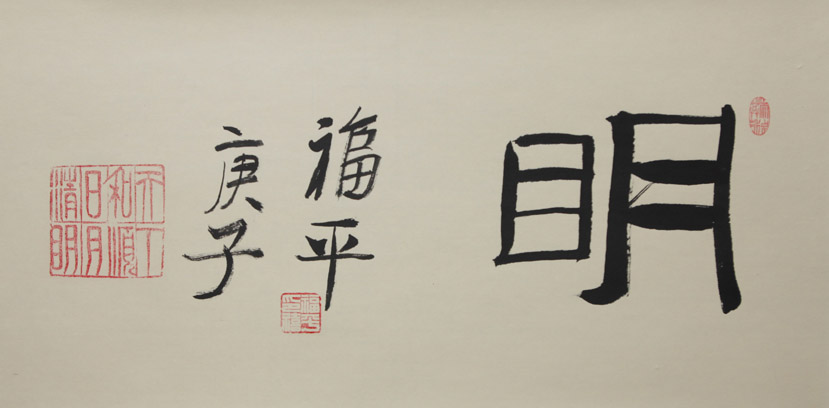 明
福平
庚子
天下
和順
日月
清明